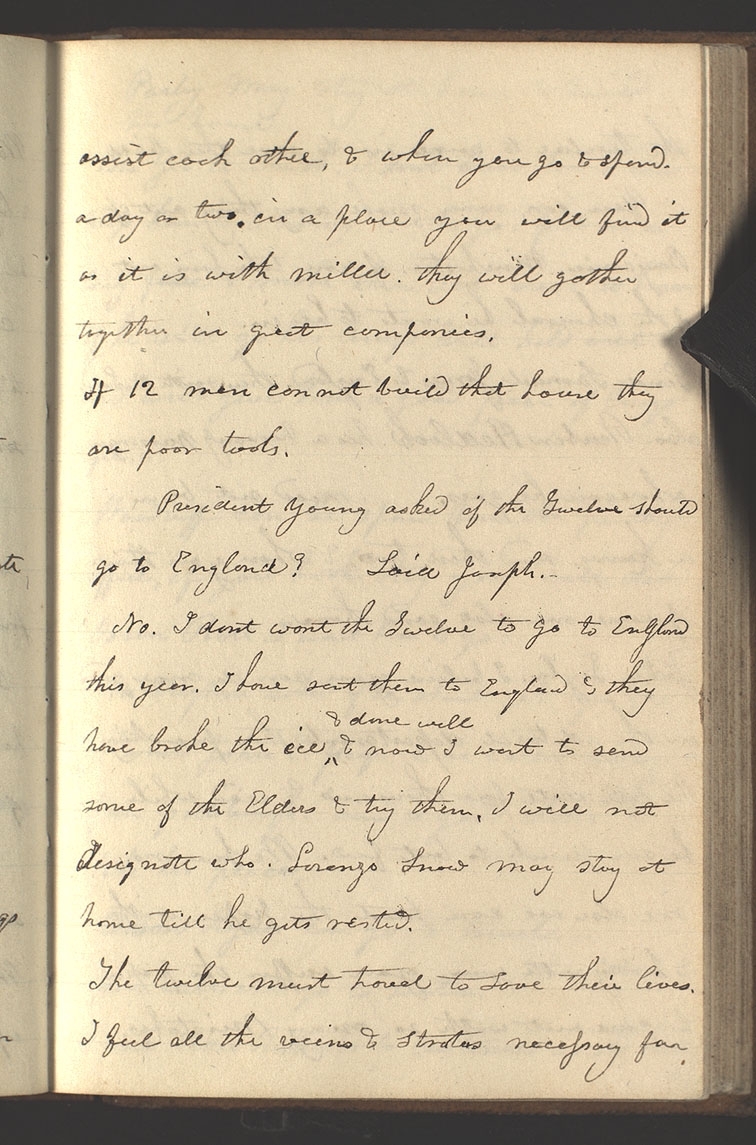 assist each other, & when you go & spend
a day or two. in a place you will find it
as it is with miller. they will gather
together in great companies.
If 12 men cannot build that house they
are poor tools.
President Young asked if the Twelve should
go to England? Said Joseph.-
No. I dont want the Twelve to go to England
this year. I have sent them to England & they
& done well
have broke the ice & now I want to send
some of the Elders & try them, I will not
designate who. Lorenzo Snow may stay at
home till he gets rested.
The twelve must travel to save their lives.
I feel all the veins & stratas necessary for